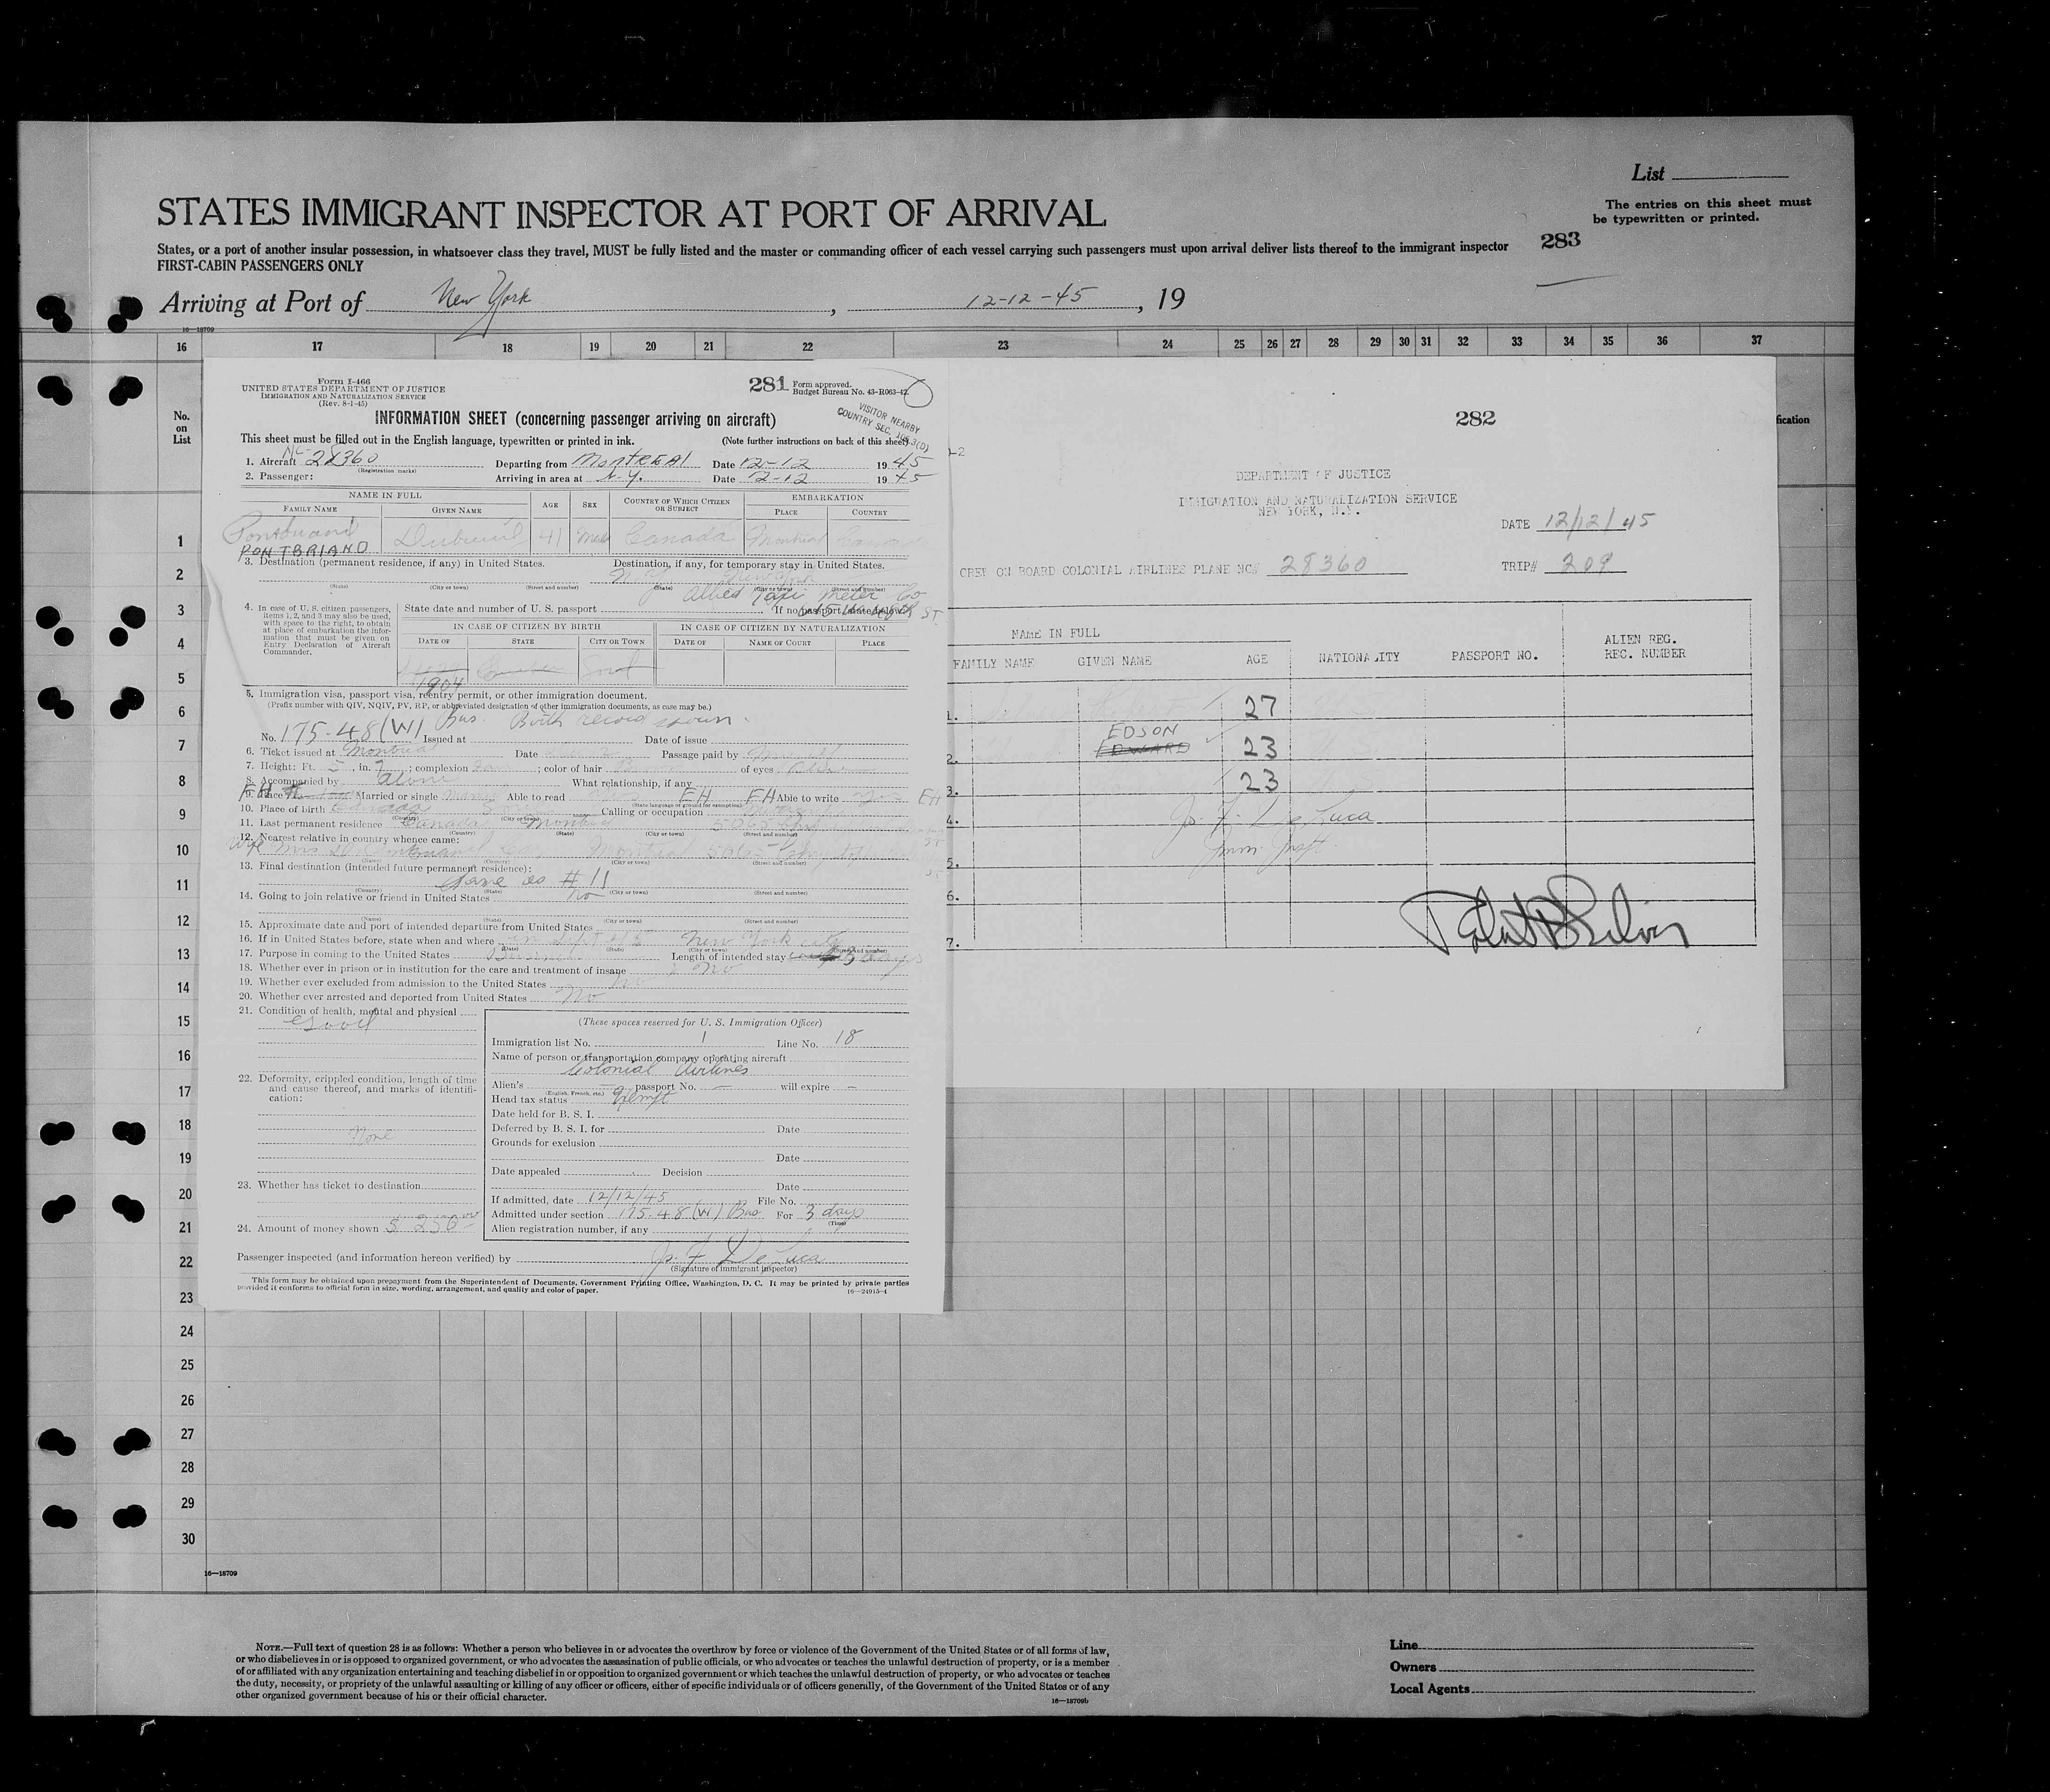 List
STATES IMMIGRANT INSPECTOR AT PORT OF ARRIVAL
The entries on this sheet must
be typewritten or printed.
States, or a port of another insular possession, in whatsoever class they travel, MUST be fully listed and the master or commanding officer of each vessel carrying such passengers must upon arrival deliver lists thereof to the immigrant inspector
283
FIRST-CABIN PASSENGERS ONLY
Arriving at Port of New York, 12-12-45, 19
16—18709
16 17 18 19 20 21 22 23 24 25 26 27 28 29 30 31 32 33 34 35 36 37
No.
on
List
1
2
3
4
5
6
7
8
9
10
11
12
13
14
15
16
17
18
19
20
21
22
23
24
25
26
27
28
29
30
Form I-466
UNITED STATES DEPARTMENT OF JUSTICE
IMMIGRATION AND NATURALIZATION SERVICE
(Rev. 8-1-45)
281
Form approved.
Budget Bureau No. 43-R063-42.
INFORMATION SHEET (concerning passenger arriving on aircraft)
VISITOR NEARBY
COUNTRY SEC. 165.3(D)
This sheet must be filled out in the English language, typewritten or printed in ink. (Note further instructions on back of this sheet)
1. Aircraft NC-28360 Departing from MONTREAl Date 12-12 1945
(Registration marks)
2. Passenger: Arriving in area at N.Y. Date 12-12 1945
NAME IN FULL AGE SEX COUNTRY OF WHICH CITIZEN OR SUBJECT EMBARKATION
FAMILY NAME GIVEN NAME PLACE COUNTRY
Pontbriand Dubreuil 41 Male Canada Montreal Canada
PONTBRIAND
3. Destination (permanent residence, if any) in United States. Destination, if any, for temporary stay in United States.
N.Y. New York
(State) (City or town) (Street and number) (State) (City or town) (Street and number)
Allied Taxi Meter Co
4. In case of U. S. citizen passengers, items 1, 2, and 3 may also be used, with space to the right, to obtain at place of embarkation the information that must be given on Entry Declaration of Aircraft Commander.
State date and number of U. S. passport If no passport, state below:
IN CASE OF CITIZEN BY BIRTH IN CASE OF CITIZEN BY NATURALIZATION
DATE OF STATE CITY OR TOWN DATE OF NAME OF COURT PLACE
1904
5. Immigration visa, passport visa, reentry permit, or other immigration document.
(Prefix number with QIV, NQIV, PV, RP, or abbreviated designation of other immigration documents, as case may be.)
No. 175-48(W) Bus. Birth record shown. Issued at Date of issue
6. Ticket issued at Montreal Date Passage paid by
7. Height: Ft. 5, in. 7; complexion ; color of hair of eyes
8. Accompanied by alone What relationship, if any
9. Race FH Married or single Able to read EH FH Able to write EH
(State language or ground for exemption)
10. Place of birth Canada Calling or occupation
(Country) (City or town)
11. Last permanent residence Canada Montreal 5065
(Country) (State) (City or town) (Street and number)
12. Nearest relative in country whence came:
wife Mrs Montreal 5065
(Name) (Country) (City or town) (Street and number)
13. Final destination (intended future permanent residence):
Same as # 11
(Country) (State) (City or town) (Street and number)
14. Going to join relative or friend in United States No
(Name) (State) (City or town) (Street and number)
15. Approximate date and port of intended departure from United States
16. If in United States before, state when and where in Sept New York city
(Date) (State) (City or town) (Street and number)
17. Purpose in coming to the United States Business Length of intended stay 3 days
18. Whether ever in prison or in institution for the care and treatment of insane No
19. Whether ever excluded from admission to the United States No
20. Whether ever arrested and deported from United States No
21. Condition of health, mental and physical
Good
22. Deformity, crippled condition, length of time and cause thereof, and marks of identification:
None
23. Whether has ticket to destination
24. Amount of money shown $ 250.00
(These spaces reserved for U. S. Immigration Officer)
Immigration list No. 1 Line No. 18
Name of person or transportation company operating aircraft
Colonial Airlines
Alien's — passport No. — will expire —
(English, French, etc.)
Head tax status Exempt
Date held for B. S. I.
Deferred by B. S. I. for Date
Grounds for exclusion
Date
Date appealed Decision
Date
If admitted, date 12/12/45 File No.
Admitted under section 175.48(W) Bus For 3 days
(Time)
Alien registration number, if any
Passenger inspected (and information hereon verified) by Jo. F. De Luca
(Signature of immigrant inspector)
This form may be obtained upon prepayment from the Superintendent of Documents, Government Printing Office, Washington, D. C. It may be printed by private parties
provided it conforms to official form in size, wording, arrangement, and quality and color of paper. 16—24915-4
282
DEPARTMENT OF JUSTICE
IMMIGRATION AND NATURALIZATION SERVICE
NEW YORK, N.Y.
DATE 12/12/45
CREW ON BOARD COLONIAL AIRLINES PLANE NO# 28360 TRIP# 209
NAME IN FULL
FAMILY NAME GIVEN NAME AGE NATIONALITY PASSPORT NO. ALIEN REG. REC. NUMBER
1. 27
2. EDSON EDWARD 23
3. 23
4. Jo. F. De Luca
Imm. Inspt.
5.
6.
7.
16—18709
NOTE.—Full text of question 28 is as follows: Whether a person who believes in or advocates the overthrow by force or violence of the Government of the United States or of all forms of law,
or who disbelieves in or is opposed to organized government, or who advocates the assassination of public officials, or who advocates or teaches the unlawful destruction of property, or is a member
of or affiliated with any organization entertaining and teaching disbelief in or opposition to organized government or which teaches the unlawful destruction of property, or who advocates or teaches
the duty, necessity, or propriety of the unlawful assaulting or killing of any officer or officers, either of specific individuals or of officers generally, of the Government of the United States or of any
other organized government because of his or their official character.
16—18709b
Line
Owners
Local Agents